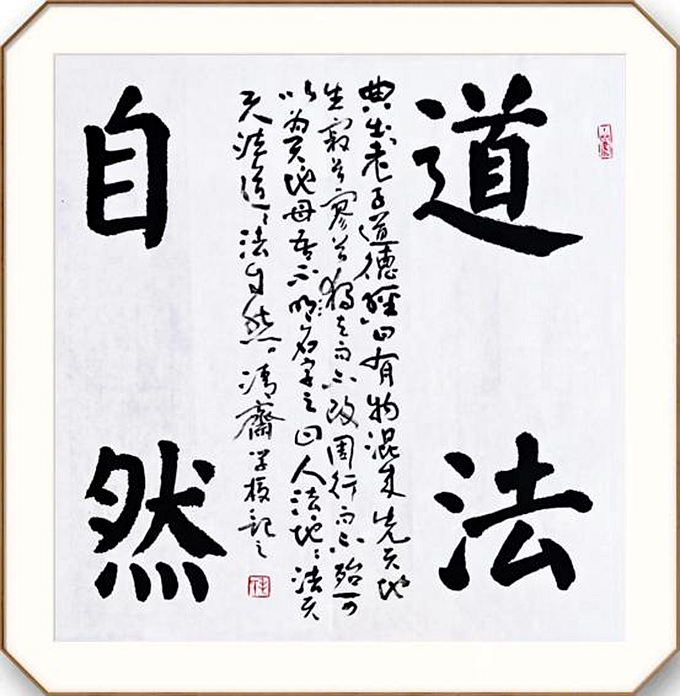 道法
自然
典出老子道德經曰有物混成先天地
生寂兮寥兮獨立而不改周行而不殆可
以为天地母吾不明名字之曰人法地〻法天
天法道〻法自然清齋学记之